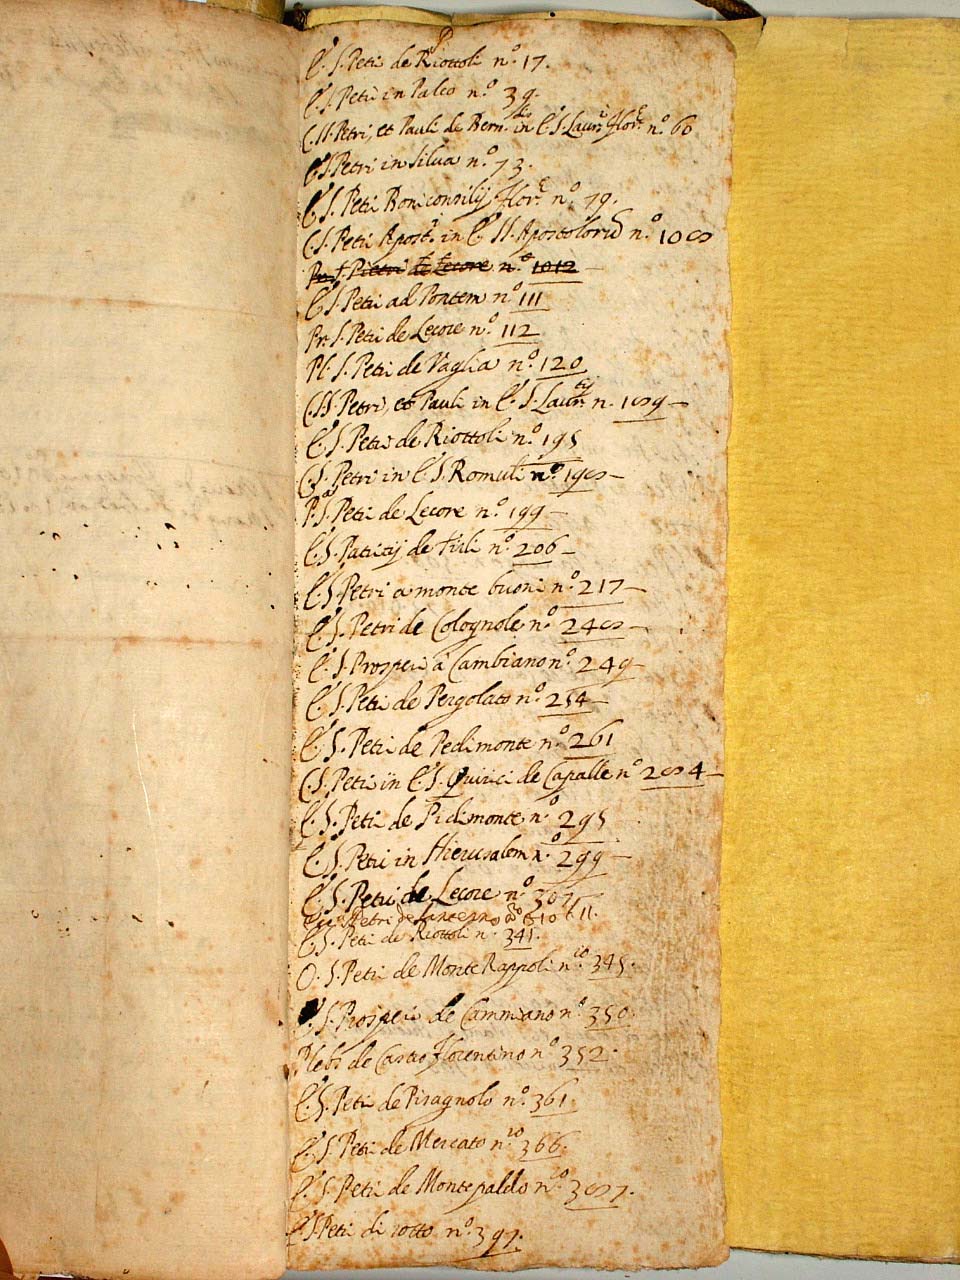 P
E. S. Petri de Riottoli n.º 17.
E. S. Petri in Palco n.º 39.
C. SS. Petri, et Pauli de Bern.di in E. S. Laur.i Flor.e n.º 60
E. S. Petri in Silva n.º 73.
E. S. Petri Boniconsilij Flor.e n.º 79.
C. S. Petri Apost.i in E. SS. Apostolorum n.º 108
Pr. S. Pietri de Lecore n.º 1012
E. S. Petri ad Pontem n.º 111
Pr. S. Petri de Lecore n.º 112
Pl. S. Petri de Vaglia n.º 120
C. SS. Petri, et Pauli in E. S. Laur.tij n. 189
E. S. Petri de Riottoli n.º 195
C. S. Petri in E. S. Romuli n.º 198
P. S. Petri de Lecore n.º 199
E. S. Patritij de Tirli n.º 206
E. S. Petri a monte buoni n.º 217
E. S. Petri de Colognole n.º 248
E. S. Prosperi a Cambiano n.º 249
E. S. Petri de Pergolato n.º 254
E. S. Petri de Pedimonte n.º 261
C. S. Petri in E. S. Quirici de Capalle n.º 284
E. S. Petri de Pidimonte n.º 295
E. S. Petri in Hierusalem n.º 299
E. S. Petri de Lecore n.º 307
Petri de
E. S. Petri de Riottoli n.º 341.
O. S. Petri de Monte Rappoli n.ro 345.
E. S. Prosperi de Cammiano n.º 350
Plebs de Castro Florentino n.º 352.
E. S. Petri de Piragnolo n.º 361.
E. S. Petri de Mercato n.ro 366.
E. S. Petri de Montepaldo n.ro 387.
E. S. Petri di sotto n.º 397.